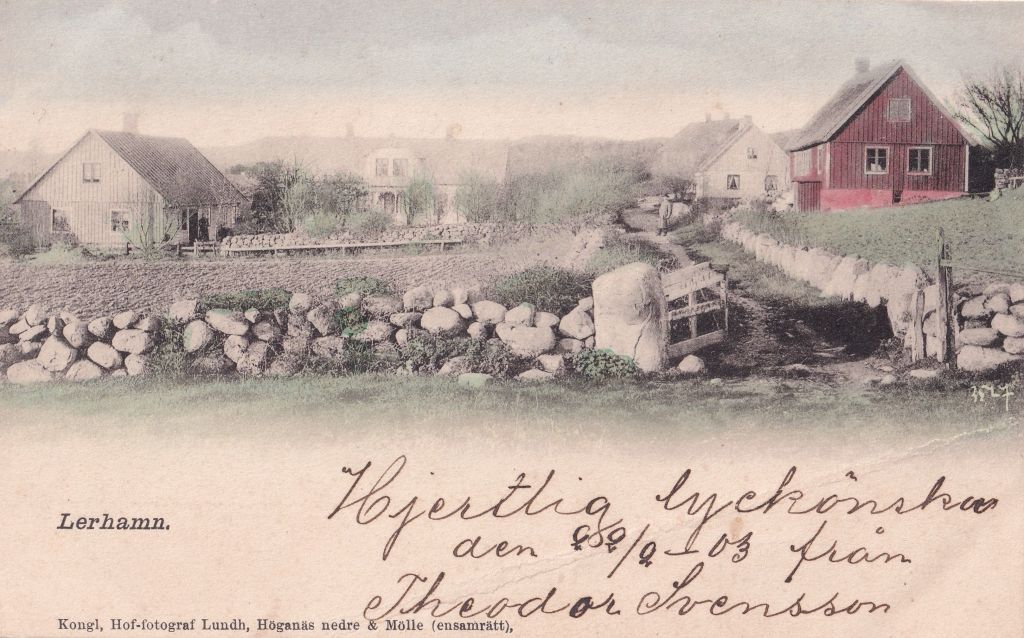 Lerhamn.
Hjertlig lyckönskan
den /9-03 från
Theodor Svensson
Kongl, Hof-fotograf Lundh, Höganäs nedre & Mölle (ensamrätt),